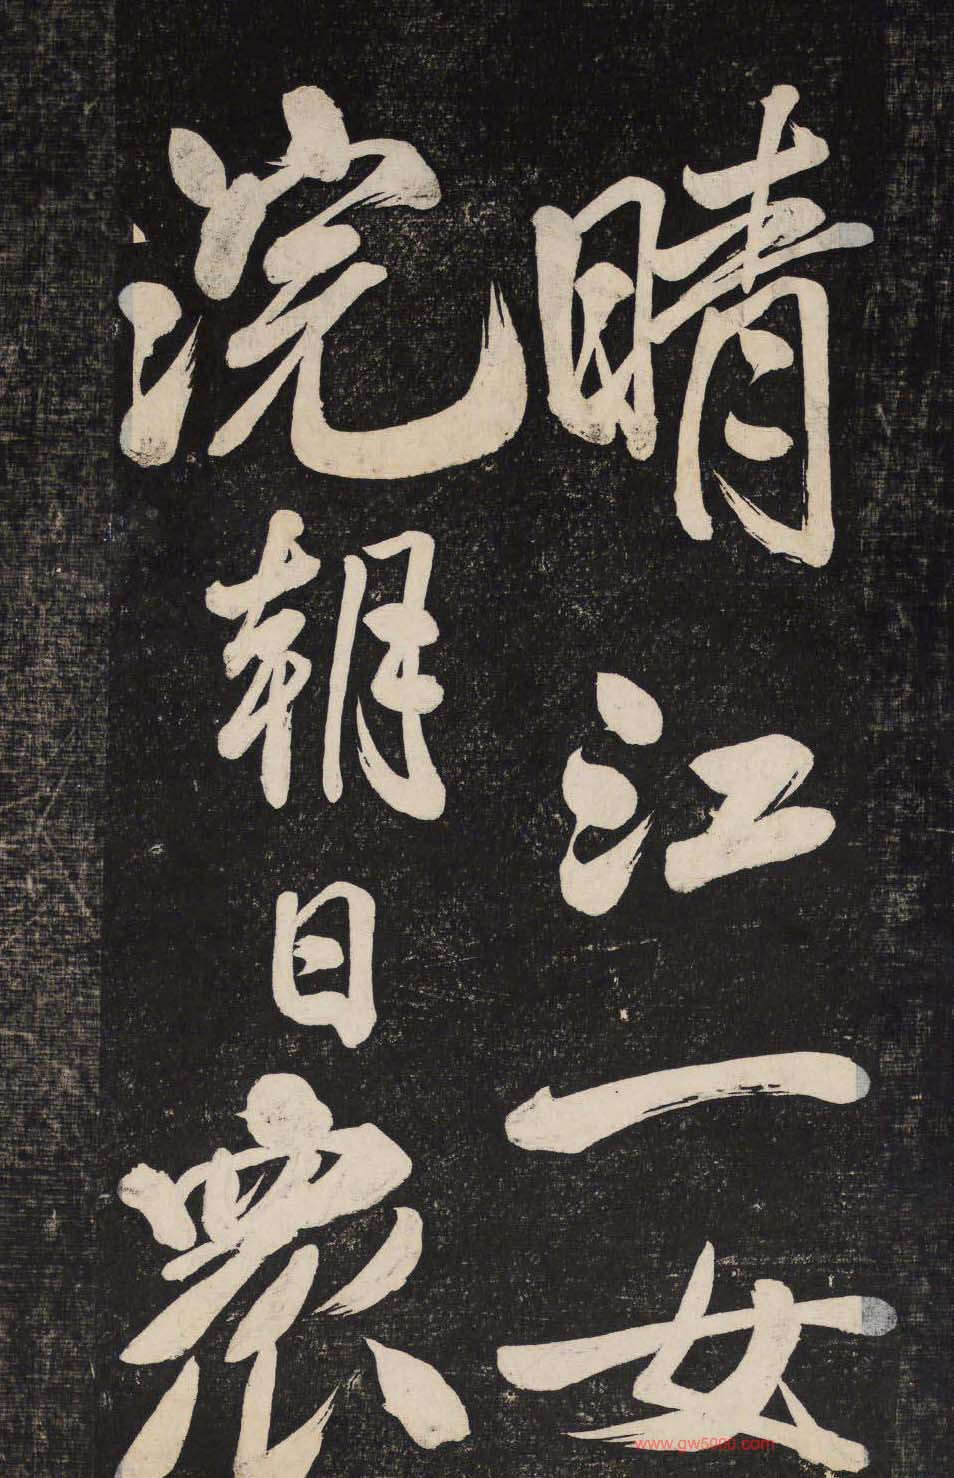 晴江一女
浣朝日眾
www.gw5000.com